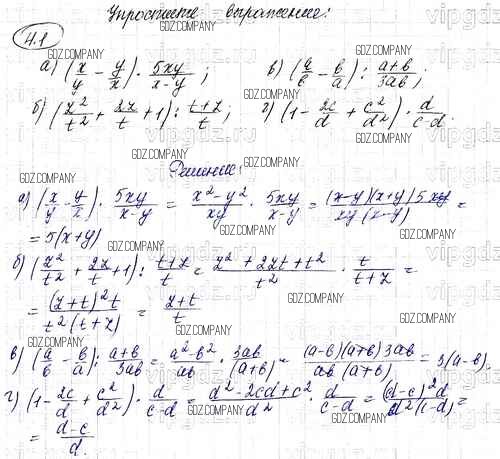 Упростите выражение:
4.1
а) (x/y - y/x) · 5xy/(x-y); в) (a/b - b/a) : (a+b)/(3ab);
б) (z²/t² + 2z/t + 1) : (t+z)/t; г) (1 - 2c/d + c²/d²) · d/(c-d).
Решение:
а) (x/y - y/x) · 5xy/(x-y) = (x²-y²)/(xy) · 5xy/(x-y) = ((x-y)(x+y)5xy)/(xy(x-y)) =
= 5(x+y)
б) (z²/t² + 2z/t + 1) : (t+z)/t = (z²+2zt+t²)/t² · t/(t+z) =
= ((z+t)²t)/(t²(t+z)) = (z+t)/t
в) (a/b - b/a) : (a+b)/(3ab) = (a²-b²)/(ab) · 3ab/(a+b) = ((a-b)(a+b)3ab)/(ab(a+b)) = 3(a-b).
г) (1 - 2c/d + c²/d²) · d/(c-d) = (d²-2cd+c²)/d² · d/(c-d) = ((d-c)²d)/(d²(c-d)) =
= (d-c)/d.